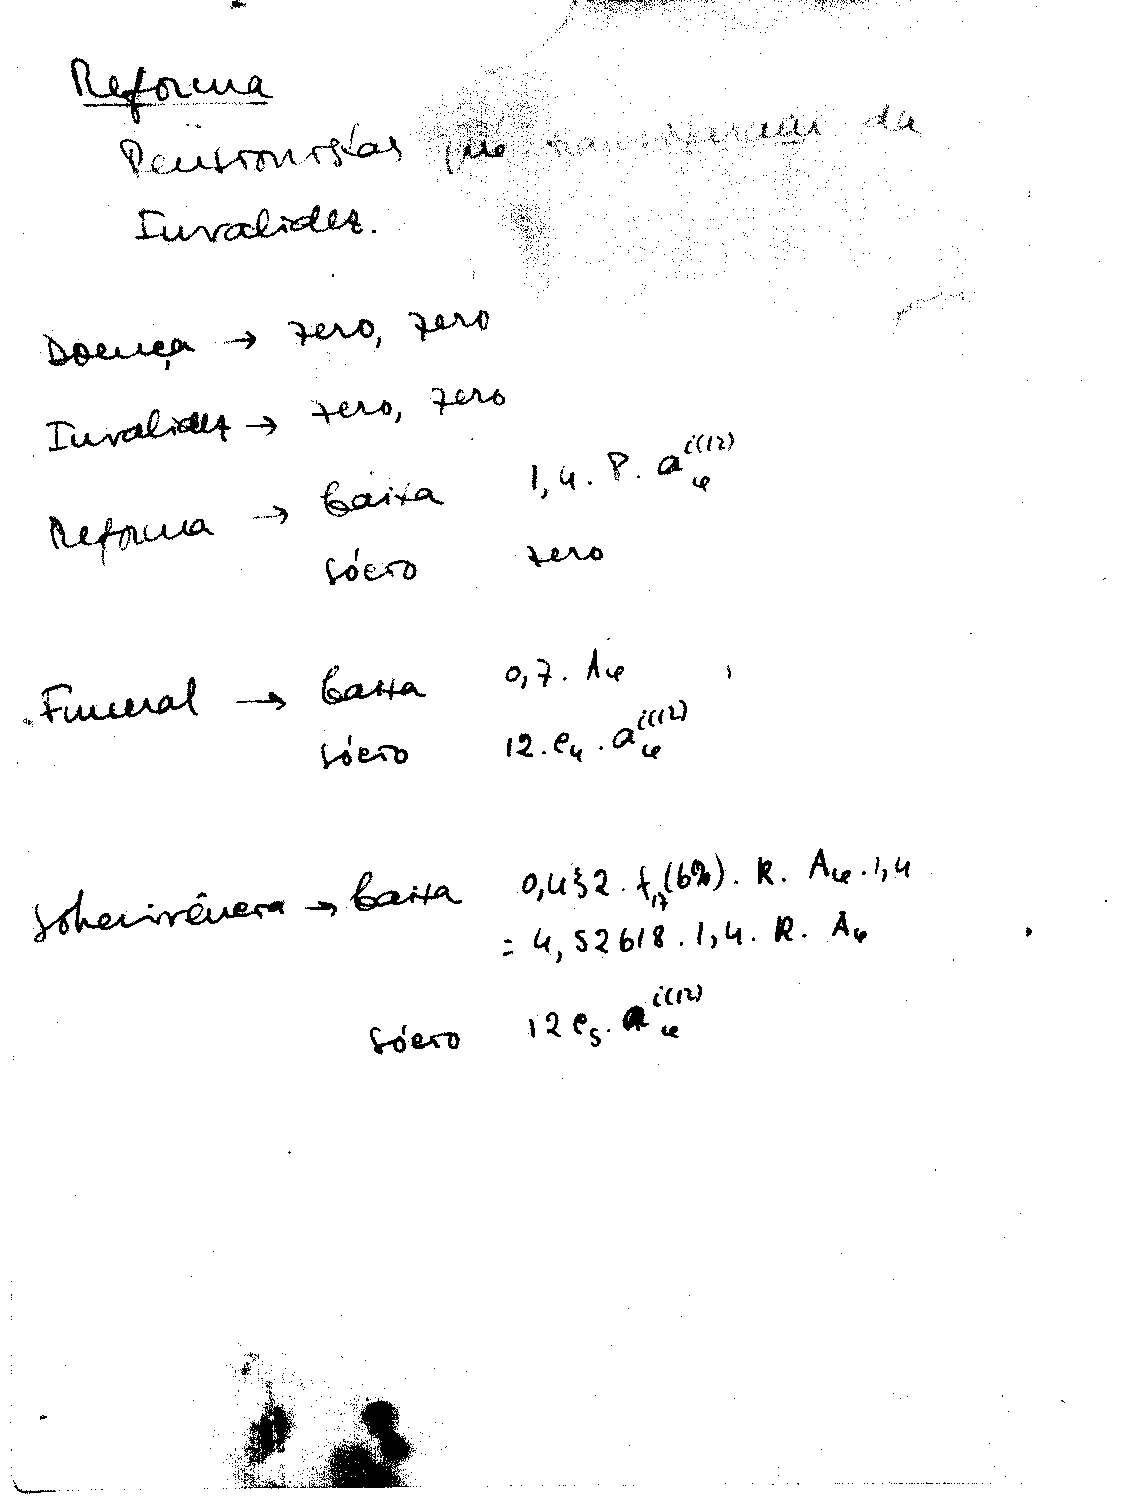 Reforma
Pensionistas que transitaram da
Invalidez.
Doença → zero, zero
Invalidez → zero, zero
Reforma → Caixa 1,4 . P . a_φ^{i(12)}
Sócio zero
Funeral → Caixa 0,7 . A_φ
Sócio 12 . e₄ . a_φ^{i(12)}
Sobrevivência → Caixa 0,432 . f₁₇(6%) . R . A_φ . 1,4
= 4,52618 . 1,4 . R . A_φ
Sócio 12 e₅ . a_φ^{i(12)}